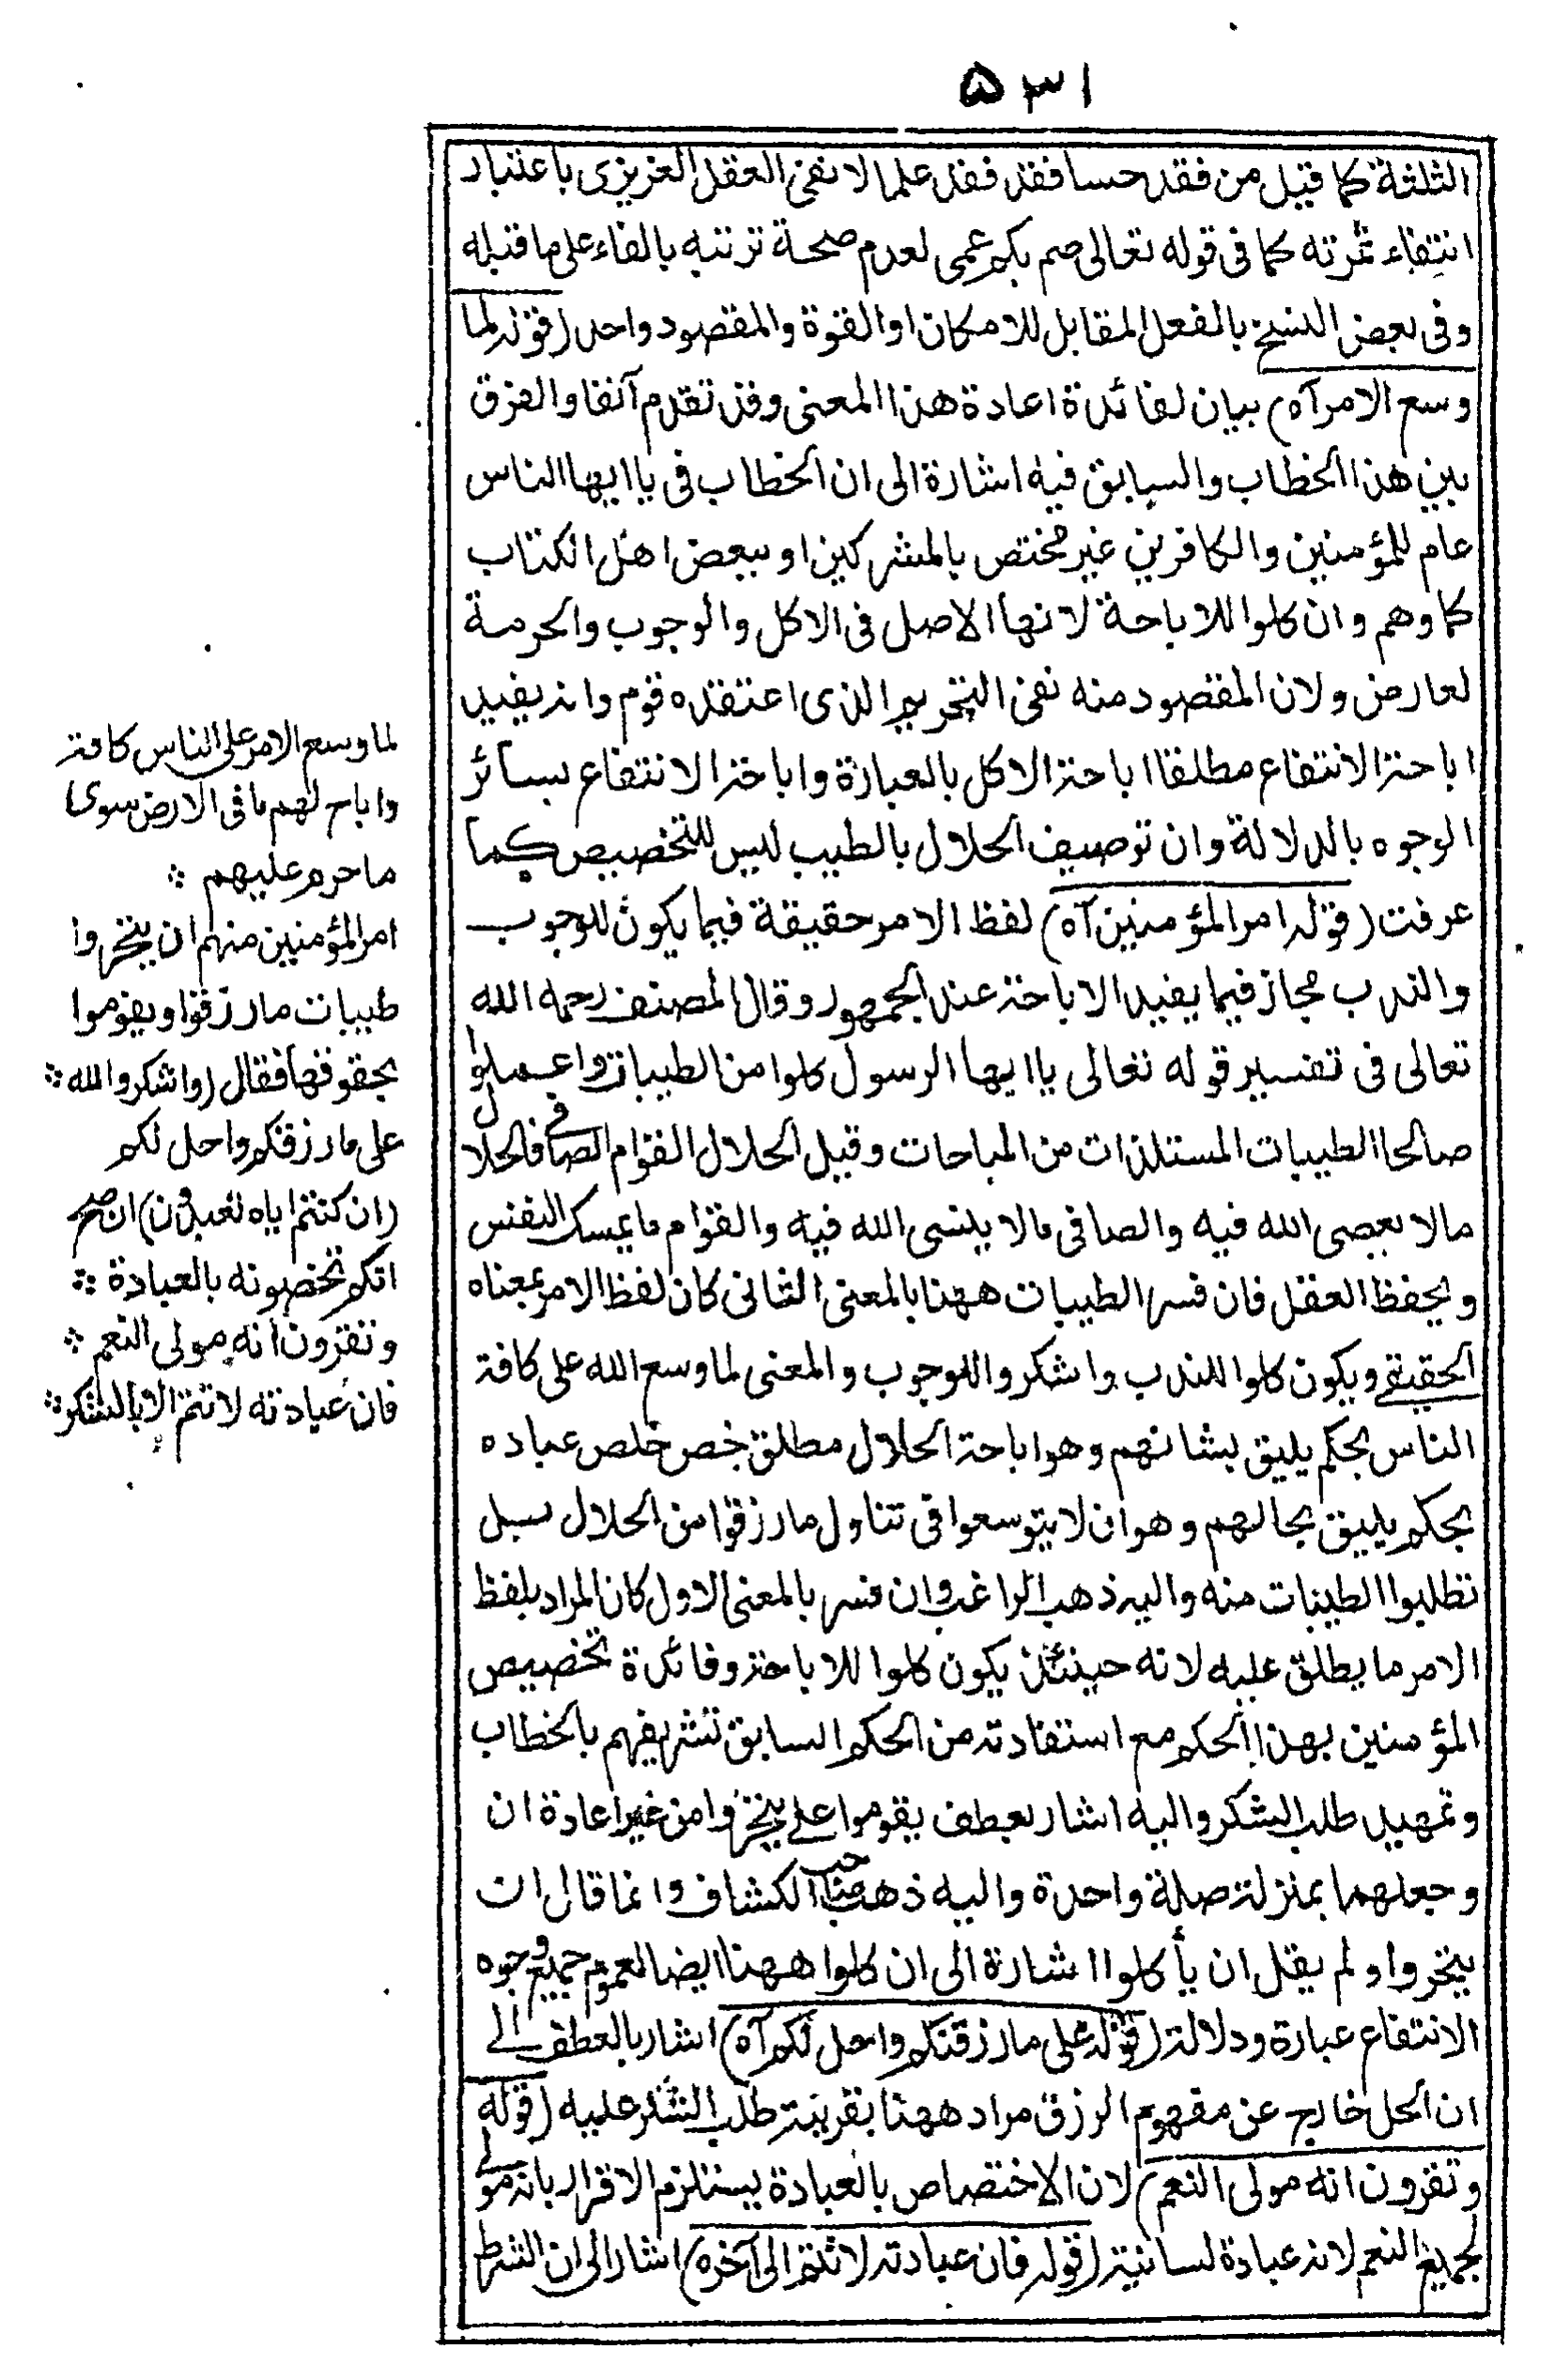 ٥٣١
الثلثة كما قيل من فقد حسا فقد فقد علما لا نفى العقل الغريزى باعتبار
انتفاء ثمرته كما فى قوله تعالى صم بكم عمى لعدم صحة ترتبه بالفاء على ما قبله
وفى بعض النسخ بالفعل المقابل للامكان او القوة والمقصود واحد (قوله لما
وسع الامر آه) بيان لفائدة اعادة هذا المعنى وقد تقدم آنفا والفرق
بين هذا الخطاب والسابق فيه اشارة الى ان الخطاب فى ياايها الناس
عام للمؤمنين والكافرين غير مختص بالمشركين او ببعض اهل الكتاب
كما وهم وان كلوا للاباحة لانها الاصل فى الاكل والوجوب والحرمة
لعارض ولان المقصود منه نفى التحريم الذى اعتقده قوم وانه يفيد
اباحة الانتفاع مطلقا اباحة الاكل بالعبارة واباحة الانتفاع بسائر
الوجوه بالدلالة وان توصيف الحلال بالطيب ليس للتخصيص كما
عرفت (قوله امر المؤمنين آه) لفظ الامر حقيقة فيما يكون للوجوب
والندب مجاز فيما يفيد الاباحة عند الجمهور وقال المصنف رحمه الله
تعالى فى تفسير قوله تعالى ياايها الرسول كلوا من الطيبات واعملوا
صالحا الطيبات المستلذات من المباحات وقيل الحلال القوام الصافى فالحلال
مالا يعصى الله فيه والصافى مالا ينسى الله فيه والقوام ما يمسك النفس
ويحفظ العقل فان فسر الطيبات ههنا بالمعنى الثانى كان لفظ الامر بمعناه
الحقيقى ويكون كلوا للندب واشكروا للوجوب والمعنى لما وسع الله على كافة
الناس بحكم يليق بشانهم وهو اباحة الحلال مطلق خص خلص عباده
بحكم يليق بحالهم وهو ان لا يتوسعوا فى تناول ما رزقوا من الحلال بل
تطلبوا الطيبات منه واليه ذهب الراغب وان فسر بالمعنى الاول كان المراد بلفظ
الامر ما يطلق عليه لانه حينئذ يكون كلوا للاباحة وفائدة تخصيص
المؤمنين بهذا الحكم مع استفادته من الحكم السابق تشريفهم بالخطاب
وتمهيد طلب الشكر واليه اشار بعطف يقوموا على يتحروا من غير اعادة ان
وجعلهما بمنزلة صلة واحدة واليه ذهب صاحب الكشاف وانما قال ان
يتحروا ولم يقل ان يأكلوا اشارة الى ان كلوا ههنا ايضا لعموم جميع وجوه
الانتفاع عبارة ودلالة (قوله على ما رزقنكم واحل لكم آه) اشار بالعطف الى
ان الحل خارج عن مفهوم الرزق مراد ههنا بقرينة طلب الشكر عليه (قوله
وتقرون انه مولى النعم) لان الاختصاص بالعبادة يستلزم الاقرار بانه مولى
لجميع النعم لانه عبادة لسانية (قوله فان عبادته لا تتم الى آخره) اشار الى ان الشرط
لما وسع الامر على الناس كافة
واباح لهم ما فى الارض سوى
ما حرم عليهم ؞
امر المؤمنين منهم ان يتحروا
طيبات ما رزقوا ويقوموا
بحقوقها فقال (واشكروا لله ؞
على ما رزقنكم واحل لكم
(ان كنتم اياه تعبدون) ان صح
انكم تخصونه بالعبادة ؞
وتقرون انه مولى النعم ؞
فان عبادته لا تتم الا بالشكر ؞